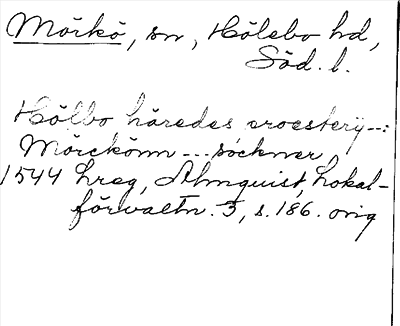 Mörkö, sn, Hölebo hd,
Söd. l.
Hölbo häredes crocstery---:
Mörckönn --- sockner
1544 hreg, Almquist, Lokal-
förvaltn. 3, s. 186. orig